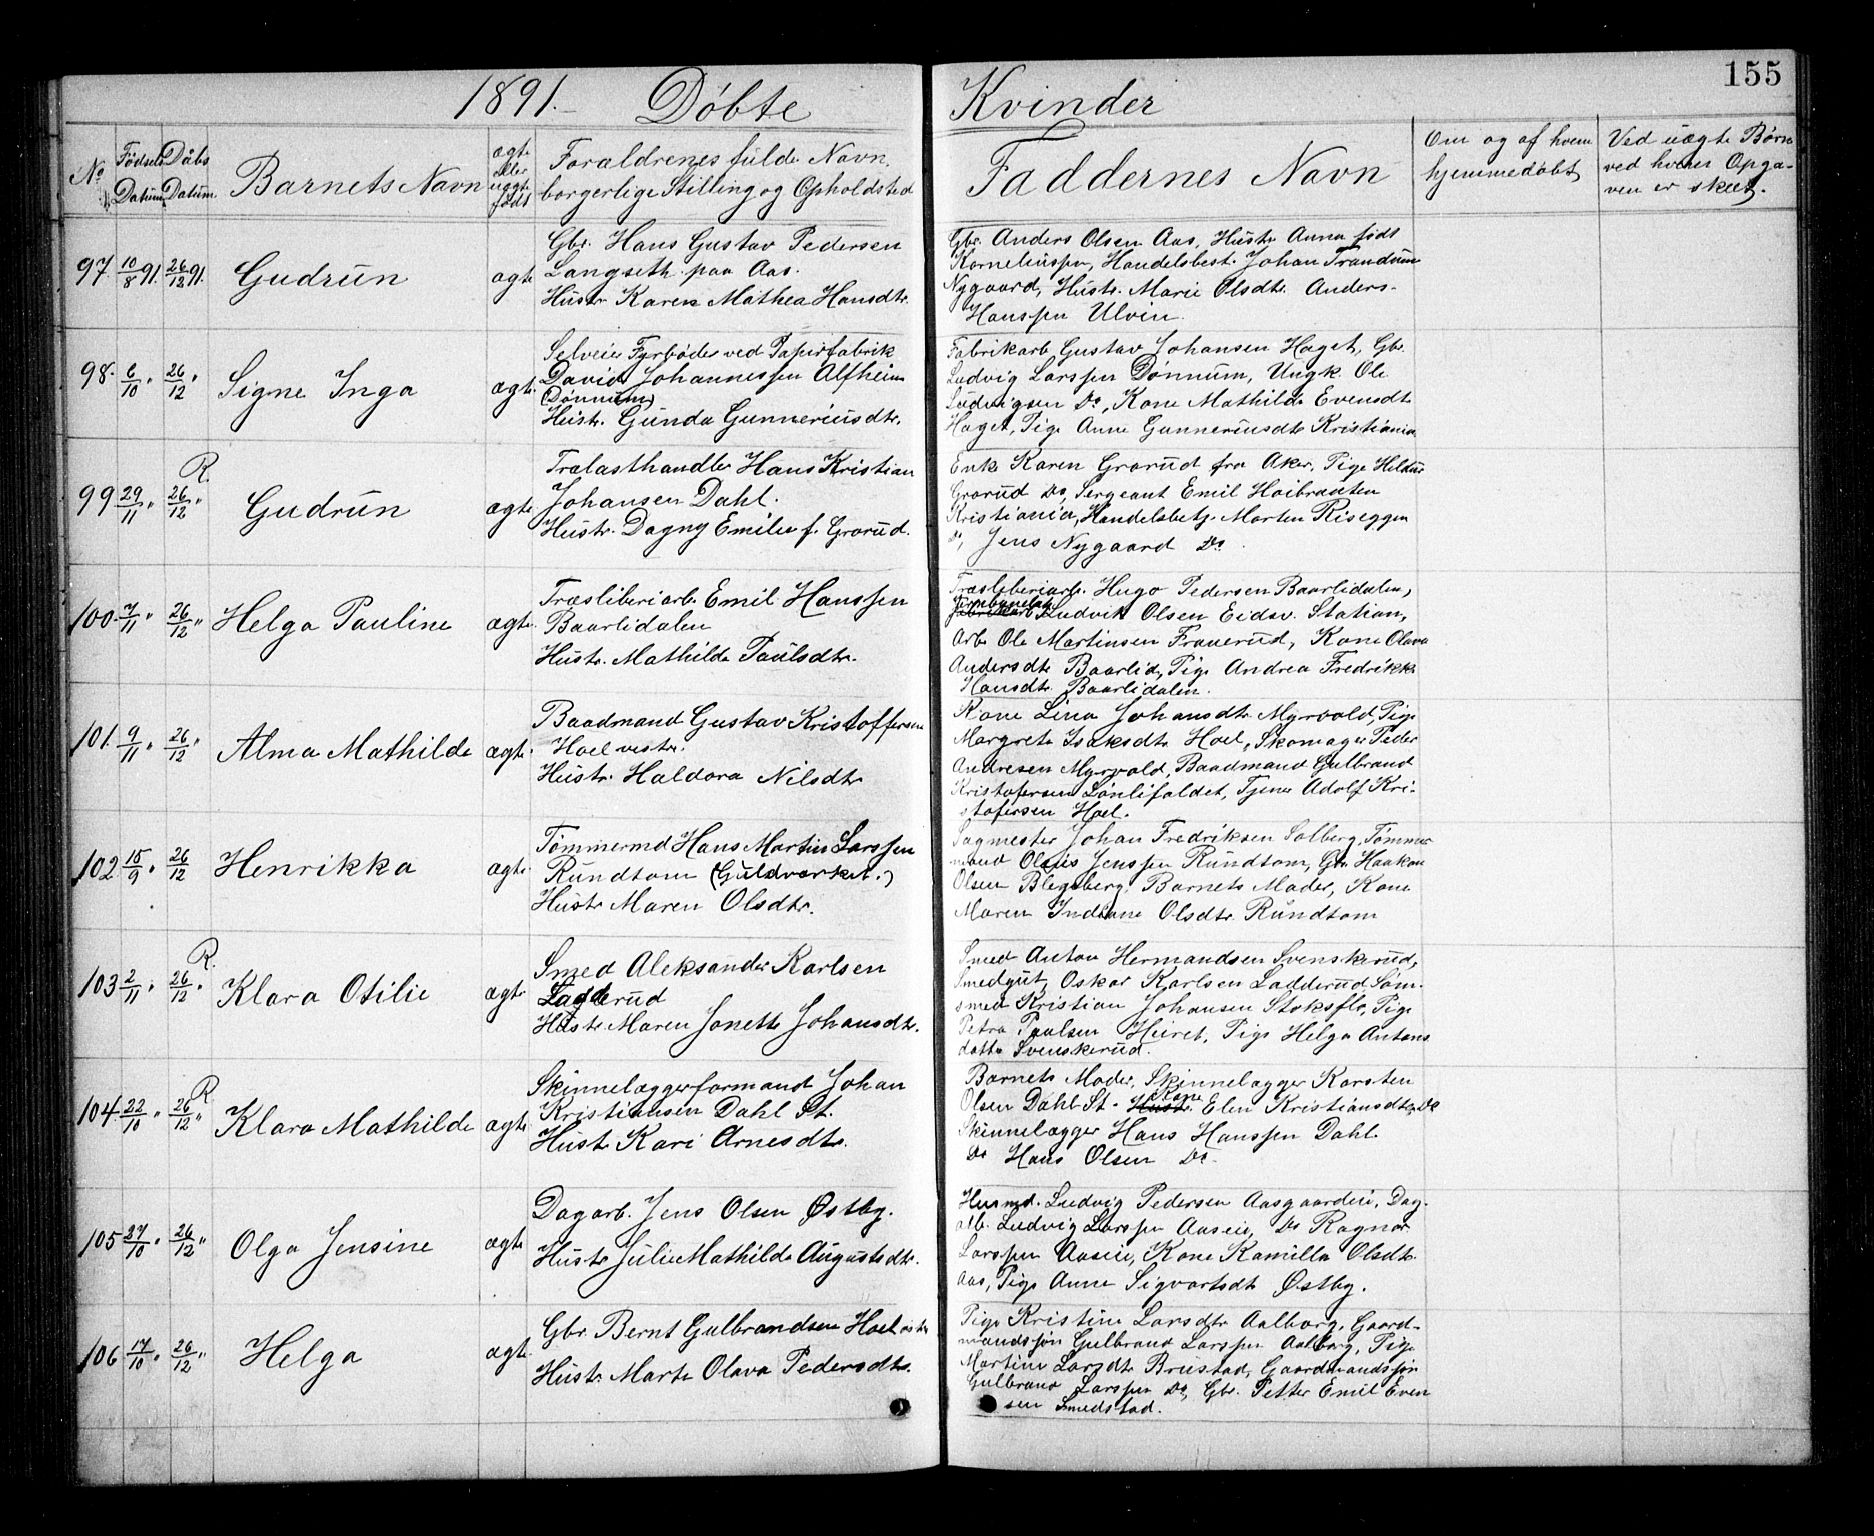 155
1891.– Døbte Kvinder
No
Fødsels Datum
Dåbs Datum
Barnets Navn
ægte eller uægte født
Forældrenes fulde Navn,
borgerlige Stilling og Opholdsted
Faddernes Navn
Om og af hvem
hjemmedøbt
Ved uægte Børn
ved hvem Opga-
ven er skeet.
97. 10/8 91. 26/12 91. Gudrun ægte
Gbr. Hans Gustav Pedersen
Langseth paa Aas.
Hustr Karen Mathea Hansdtr.
Gbr. Anders Olsen Aas, Hustr Anna født
Korneliussen, Handelsbest. Johan Trandum
Nygaard, Hustr. Marie Olsdtr. Anders-
Hanssen Ulvin.
98. 6/10 " 26/12 " Signe Inga ægte.
Selveier Fyrbøder ved Papirfabrik
David Johannessen Alfheim
(Dønnum)
Hustr. Gunda Gunneriusdtr.
Fabrikarb Gustav Johansen Haget, Gbr.
Ludvig Larssen Dønnum, Ungk. Ole
Ludvigsen Do, Kone Mathilde Evensdtr
Haget, Pige Anne Gunneriusdtr Kristiania
99 29/11 " R. 26/12 " Gudrun ægte
Trælasthandler Hans Kristian
Johansen Dahl.
Hustr. Dagny Emilie f. Grorud.
Enke Karen Grorud fra Aker, Pige Hildur
Grorud Do, Sergeant Emil Høibraaten
Kristiania, Handelsbetj. Morten Riseggen
Do, Jens Nygaard Do.
100. 7/11 " 26/12 " Helga Pauline ægte.
Træsliberiarb. Emil Hanssen
Baarlidalen
Hustr. Mathilde Paulsdtr.
Træsliberiarb. Hugo Pedersen Baarlidalen,
Ludvik Olsen Eidsv. Station,
Arb Ole Martinsen Frauerud, Kone Olava
Andersdtr Baarlid, Pige Andrea Fredrikke
Hansdtr. Baarlidalen.
101. 9/11 " 26/12 " Alma Mathilde ægte.
Baadmand Gustav Kristoffersen
Hoel vestr.
Hustr. Haldora Nilsdtr
Kone Lina Johansdtr Myrvold, Pige
Margrete Isaksdtr Hoel, Skomager Peder
Andresen Myrvold, Baadmand Gulbrand
Kristofersen Lønlifaldet, Tjener Adolf Kri-
stofersen Hoel.
102. 15/9 " 26/12 Henrikka ægte.
Tømmermd Hans Martin Larssen
Rundtom (Guldværket.)
Hustr Maren Olsdtr.
Sagmester Johan Fredriksen Solberg, Tømmer
mand Olaus Jenssen Rundtom, Gbr Haakon
Olsen Blegsberg. Barnets Moder, Kone
Maren Indiane Olsdtr. Rundtom
103 2/11 " R. 26/12 " Klara Otilie ægte
Smed Aleksander Karlsen
Ladderud
Hustr Maren Jonette Johansdtr.
Smed Anton Hermandsen Svenskerud,
Smedgut, Oskar Karlsen Ladderud Søm-
smed Kristian Johansen Stoksflo, Pige
Petra Paulsen Heiret, Pige Helga Antons
datter Svenskerud.
104. 22/10 " R. 26/12 " Klara Mathilde ægte
Skinnelæggerformand Johan
Kristiansen Dahl St.
Hustr Kari Arnesdtr.
Barnets Moder, Skinnelægger Karsten
Olsen Dahl St. Hustr. Kone Elen Kristiansdtr, Do
Skinnelægger Hans Hanssen Dahl
Do Hans Olsen Do.
105 27/10 " 26/12 " Olga Jensine ægte
Dagarb. Jens Olsen Østby.
Hustr Julie Mathilde Augustsdtr.
Husmd. Ludvig Pedersen Aasgaardeie, Dag-
arb. Ludvig Larssen Aaseie, Do Ragnar
Larssen Aaseie, Kone Kamilla Olsdtr.
Aas, Pige Anne Sigvartsdtr Østby.
106 17/10 " 26/12 " Helga ægte.
Gbr. Bernt Gulbrandsen Hoel
Hustr. Marte Olava Pedersdtr.
Pige Kristine Larsdtr Aalborg, Gaard-
mandssøn Gulbrand Larssen Aalborg, Pige
Martine Larsdtr Brustad, Gaardmandssøn
Gulbrand Larssen Do, Gbr. Petter Emil Even
sen Smedstad.